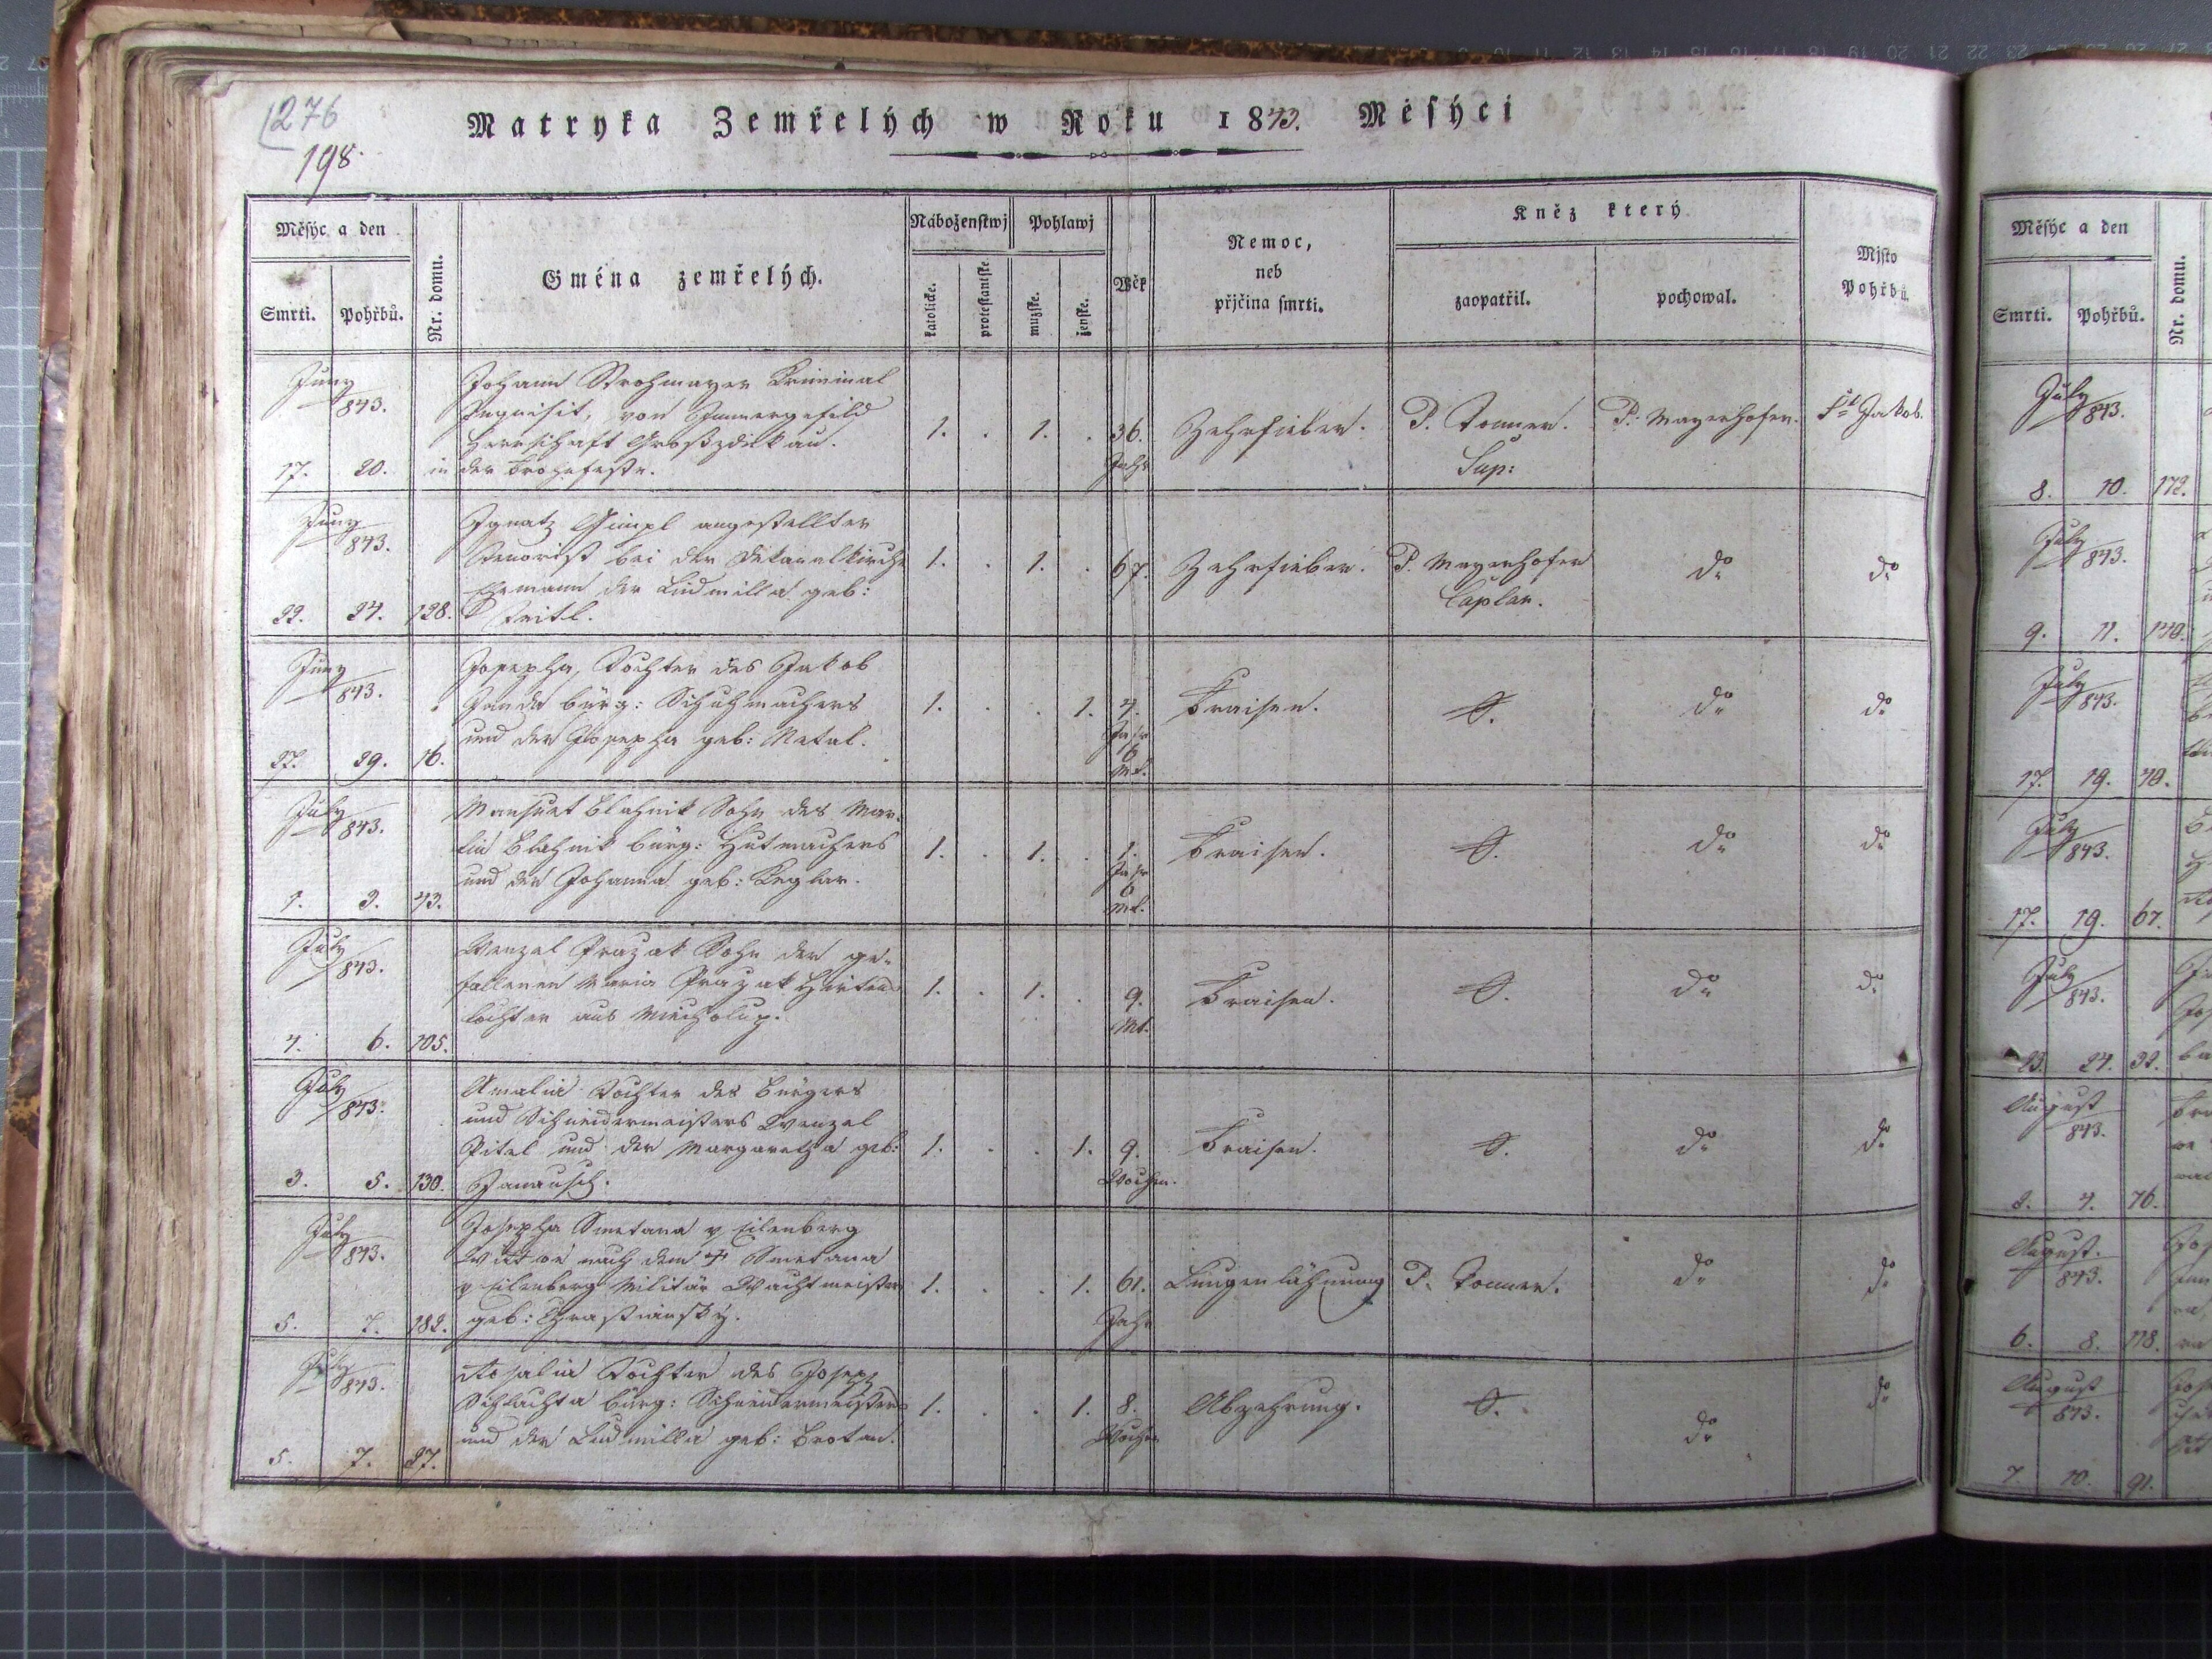 276
198.
Matryka Zemřelých w Roku 1843. Měsýci
Měsýc a den
Smrti.
Pohřbů.
Nr. domu.
Gména zemřelých.
Náboženstwj
katolicke.
protestantske
Pohlawj
muzske.
zenske.
Wěk
Nemoc,
neb
přjčina smrti.
Kněz který
zaopatřil.
pochowal.
Mjsto
Pohřbů.
Juny
843.
17. 20.
Johann Strohmayer Kriminal
Inquisit, von
Herrschaft Großzdikau.
in der Frohnfeste.
1. . 1. . 36.
Jahr
Zehrfieber.
P. Tonner.
Sup:
P. Mayerhofer.
St Jakob.
Juny
843.
22. 24. 128.
Ignatz Gimpl angestellter
Tenorist bei der Dekanalkirche
Ehemann der Ludmilla geb:
1. . 1. . 67.
Zehrfieber.
P. Mayerhofer
Caplan.
do
do
Juny
843.
27. 29. 16.
Josepha, Tochter des Jakob
Janda bürg: Schuhmachers
und der Josepha geb:
1. . . 1. 4.
Jahr
6
Mt.
Fraisen.
do
do
July
843.
1. 3. 43.
Mansuet Blahnik Sohn des Mar-
tin Blahnik bürg: Hutmachers
und der Johanna geb: Keglar.
1. . 1. . 1.
Jahr
6
Mt.
Fraisen.
do
do
July
843.
4. 6. 105.
Wenzal Prazak Sohn der ge-
fallenen Maria Prazak Hirtens
tochter aus Mecholup.
1. . 1. . 9.
Mt.
Fraisen.
do
do
July
843.
3. 5. 130.
Amalia Tochter des Bürgers
und Schneidermeisters Wenzel
Pitel und der Margaretha geb:
Janausch.
1. . . 1. 9.
Wochen.
Fraisen.
do
do
July
843.
5. 7. 182.
Josepha Smetana v Eilenberg
Wittwe nach dem † Smetana
v Eilenberg Militär Wachtmeister
geb: Chrastiansky.
1. . . 1. 61.
Jahr
Lungenlähmung
P. Tonner.
do
do
July
843.
5. 7. 27.
Rosalia Tochter des Joseph
Schlachta bürg: Schneidermeisters
und der Ludmilla geb: Brotan.
1. . . 1. 8.
Wochen
Abzehrung.
do
do
Měsýc a den
Smrti.
Pohřbů.
Nr. domu.
July
843.
8. 10. 172.
July
843.
9. 11. 140.
July
843.
17. 19. 40.
July
843.
17. 19. 67.
July
843.
23. 24. 32.
August
843.
4. 76.
August.
843.
6. 8. 118.
August
843.
7. 10. 91.